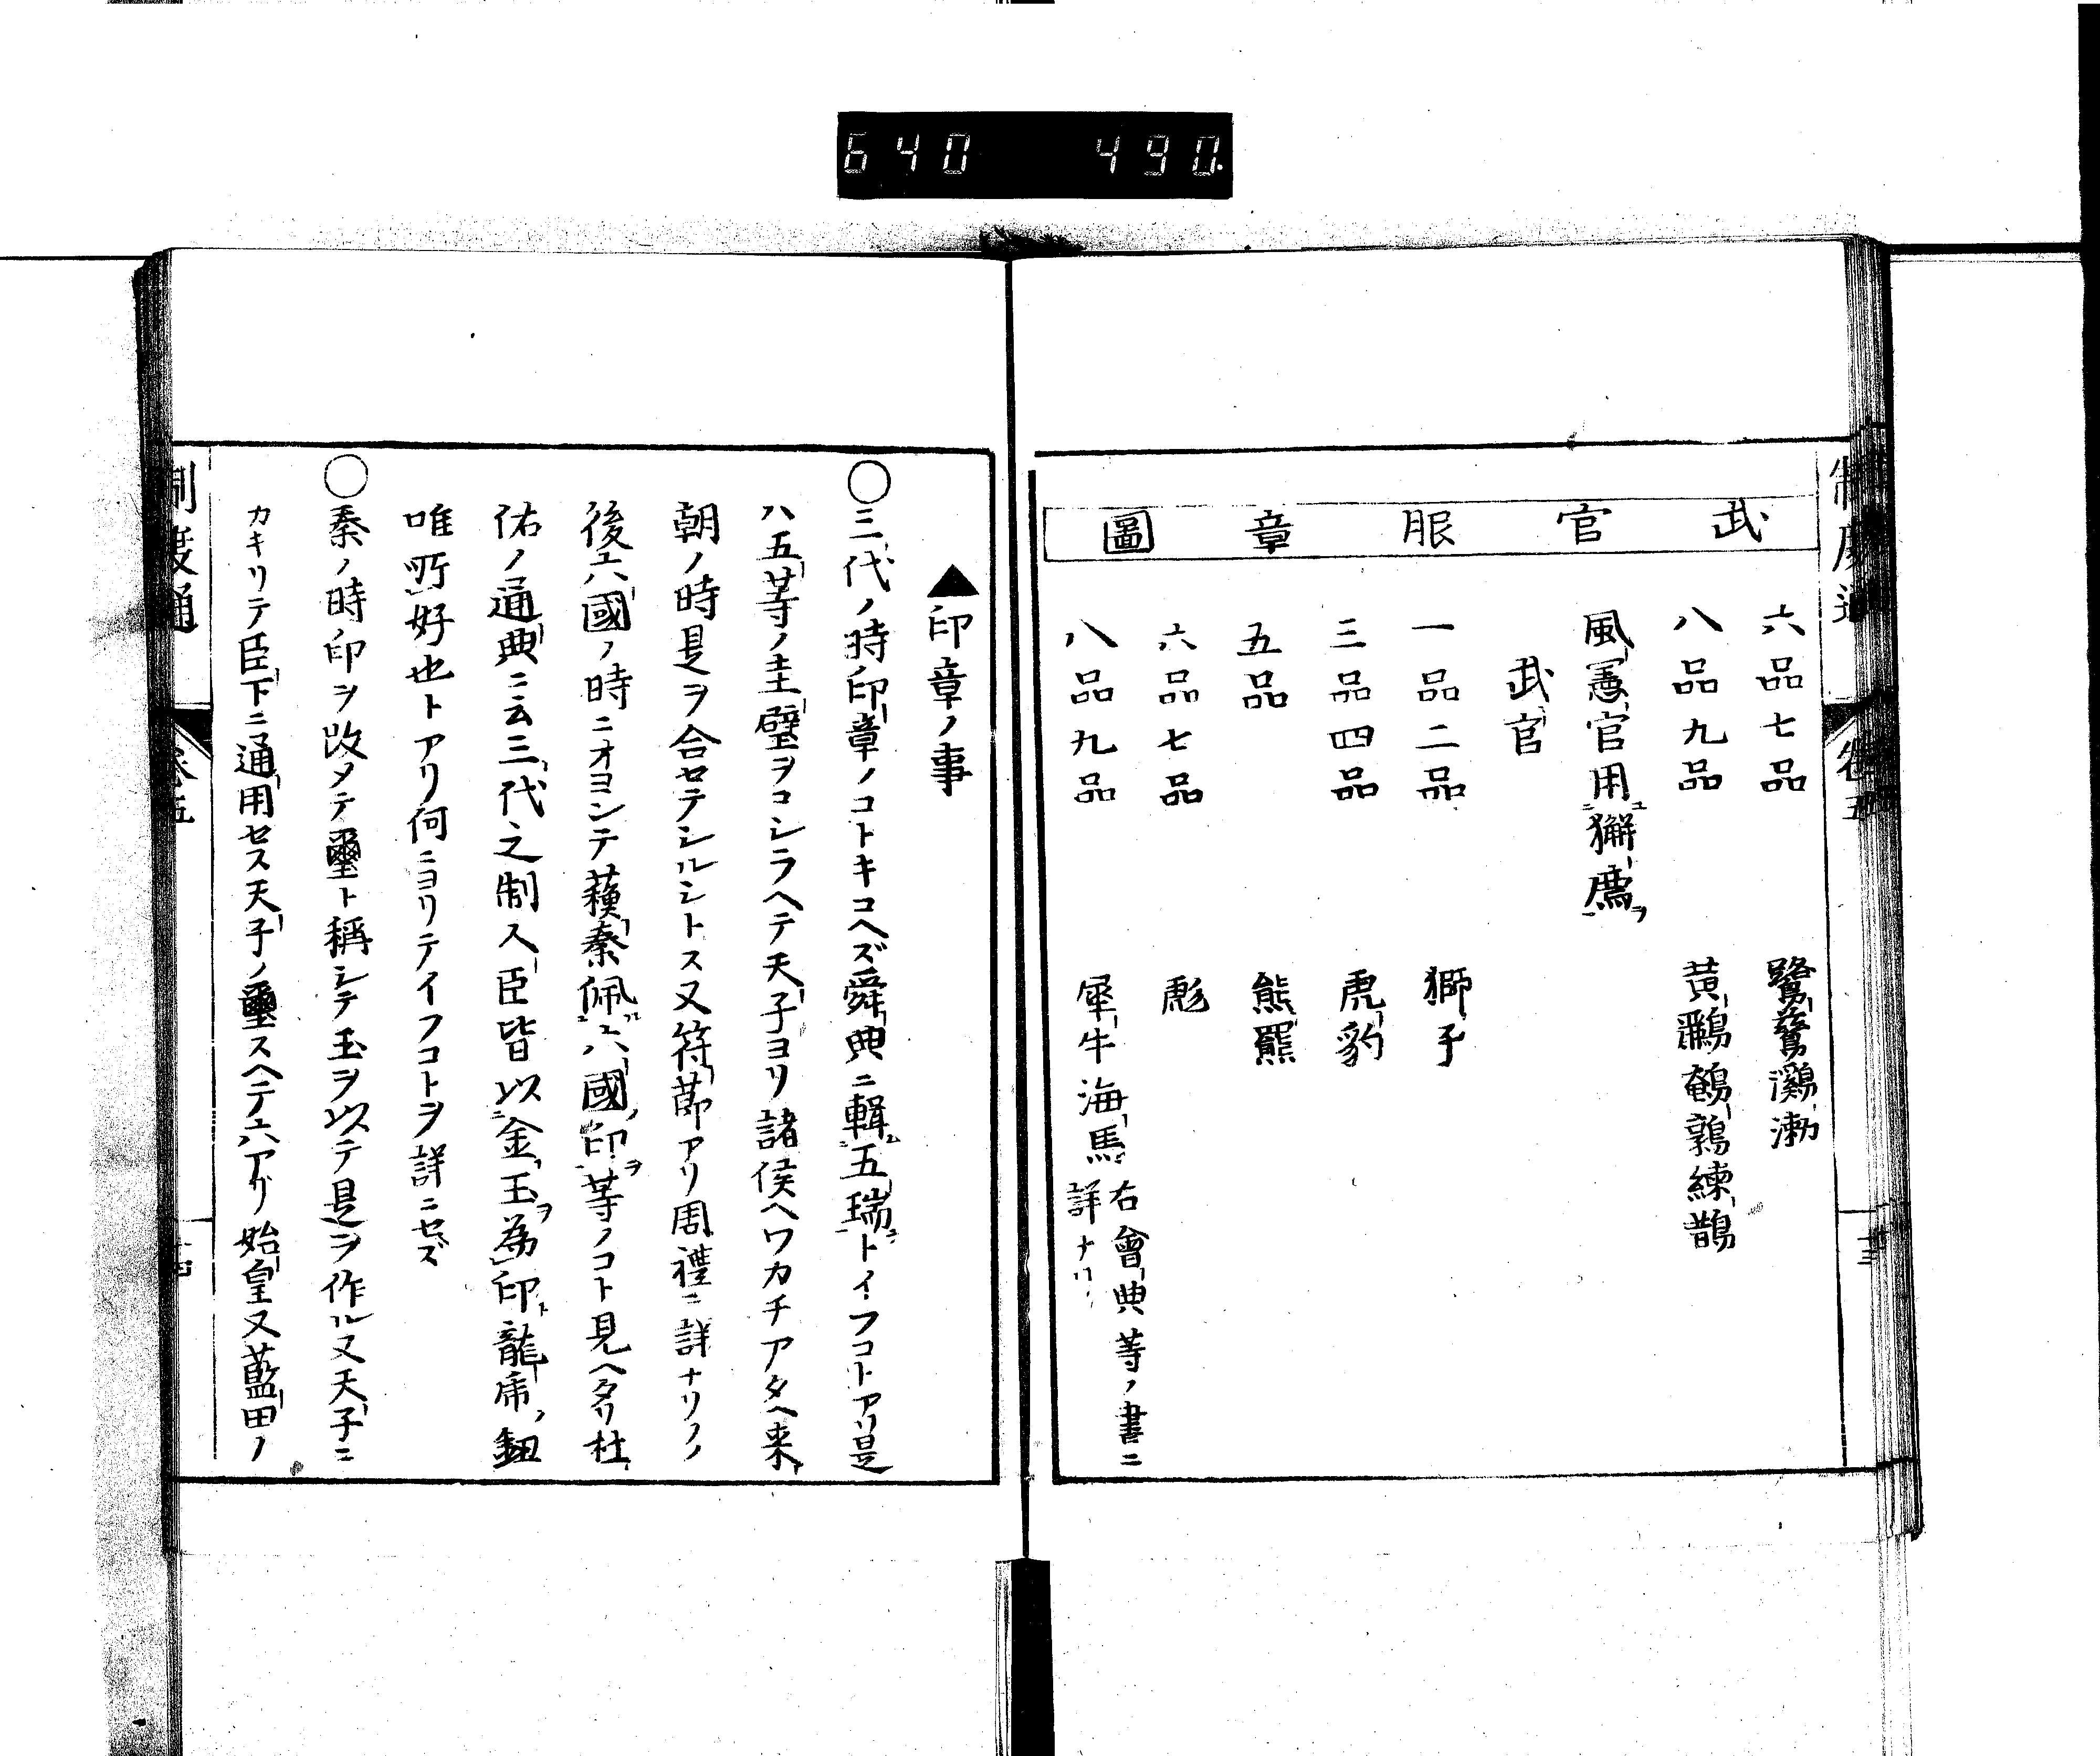 640 490.
武官服章圖
六品七品 鷺鷥鸂𪆟
八品九品 黃鸝鵪鶉練鵲
風憲官用獬廌
武官
一品二品 獅子
三品四品 虎豹
五品 熊羆
六品七品 彪
八品九品 犀牛海馬 右會典等ノ書ニ
詳ナリ
卷五
十三
▲印章ノ事
○三代ノ時印章ノコトキコヘズ舜典ニ輯五瑞トイフコトアリ是
ハ五等ノ圭璧ヲコシラヘテ天子ヨリ諸侯ヘワカチアタヘ来
朝ノ時是ヲ合セテシルシトス又符節アリ周禮ニ詳ナリソノ
後六國ノ時ニオヨンテ蘓秦佩六國印等ノコト見ヘタリ杜
佑ノ通典ニ云三代之制人臣皆以金玉為印龍虎ノ鈕
唯所好也トアリ何ニヨリテイフコトヲ詳ニセズ
○秦ノ時印ヲ改メテ璽ト稱シテ玉ヲ以テ是ヲ作ル又天子ニ
カキリテ臣下ニ通用セス天子ノ璽スヘテ六アリ始皇又藍田ノ
制度通
卷五
十四